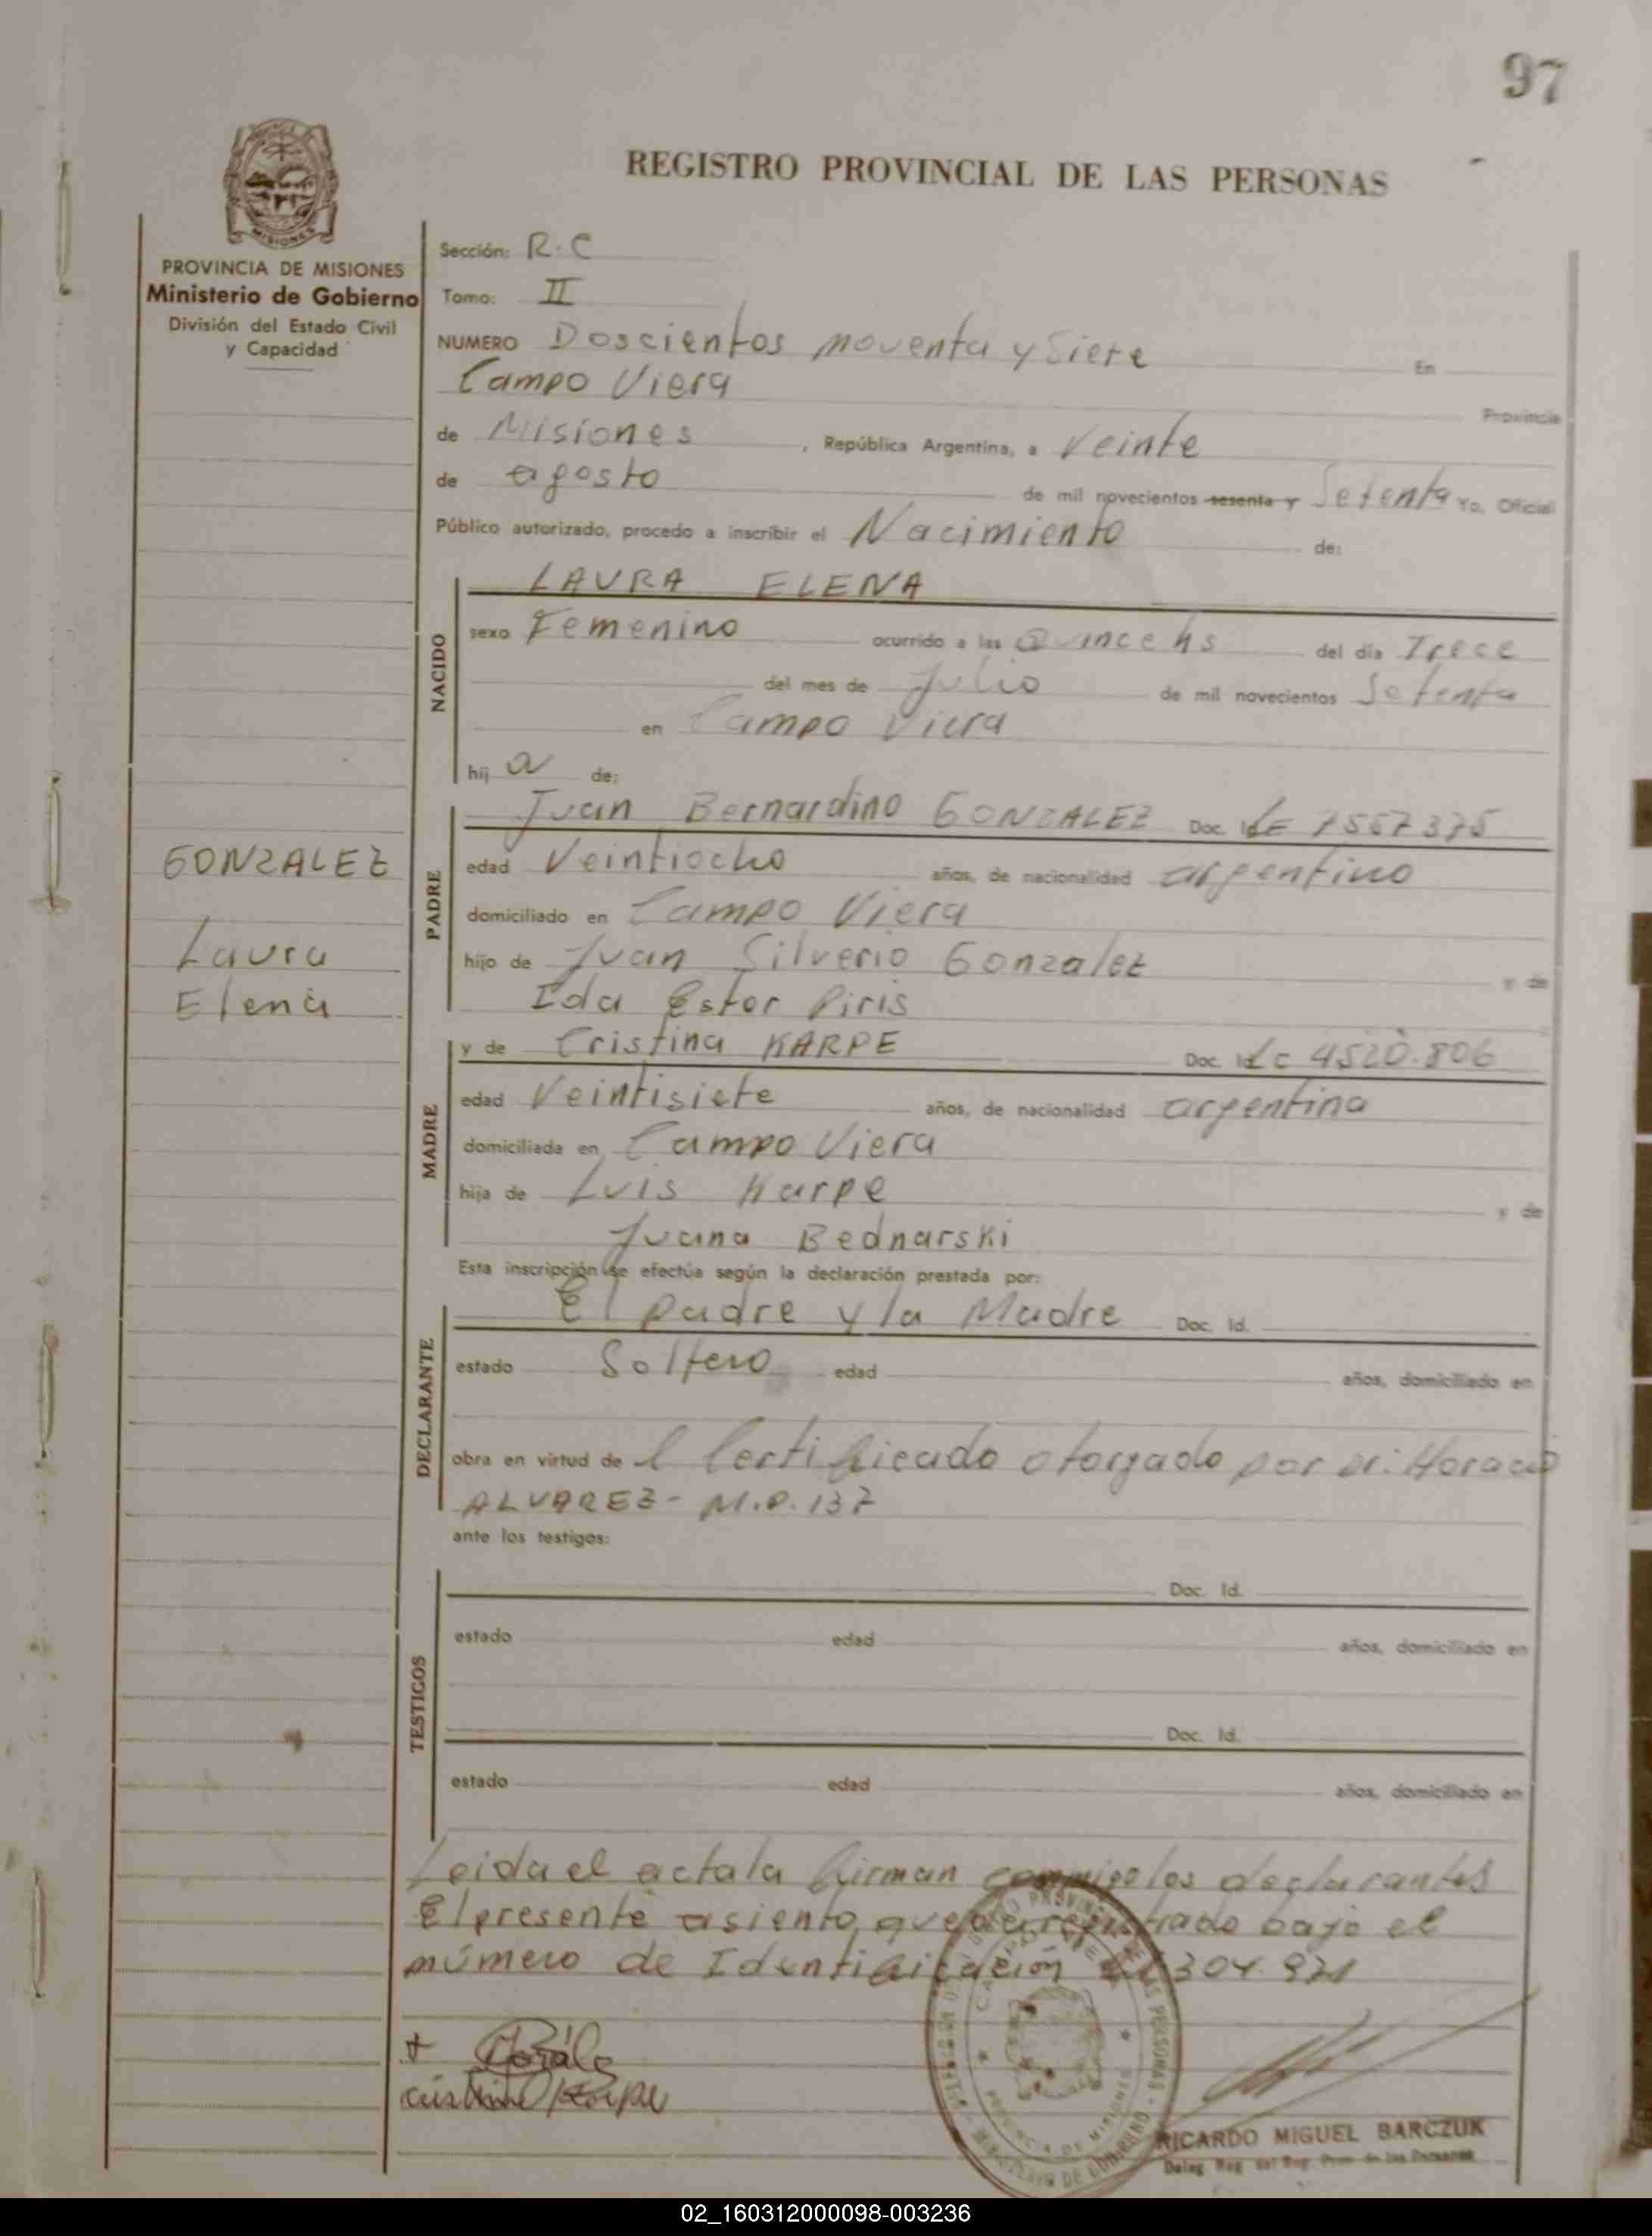 97
REGISTRO PROVINCIAL DE LAS PERSONAS
MISIONES
PROVINCIA DE MISIONES
Ministerio de Gobierno
División del Estado Civil
y Capacidad
Sección: R.C
Tomo: II
NUMERO Doscientos noventa y Siete En
Campo Viera Provincia
de Misiones, República Argentina, a Veinte
de agosto de mil novecientos sesenta y Setenta Yo, Oficial
Público autorizado, procedo a inscribir el Nacimiento de:
NACIDO
LAURA ELENA
sexo Femenino ocurrido a las Quince hs del día Trece
del mes de Julio de mil novecientos Setenta
en Campo Viera
hij a de:
GONZALEZ
Laura
Elena
PADRE
Juan Bernardino GONZALEZ Doc. LE 7557375
edad Veintiocho años, de nacionalidad argentino
domiciliado en Campo Viera
hijo de Juan Silverio Gonzalez y de
Ida Ester Piris
MADRE
y de Cristina KARPE Doc. LC 4520.806
edad Veintisiete años, de nacionalidad argentina
domiciliada en Campo Viera
hija de Luis Karpe y de
Juana Bednarski
Esta inscripción se efectúa según la declaración prestada por:
DECLARANTE
El padre y la Madre Doc. Id.
estado Soltero edad años, domiciliado en
obra en virtud de l Certificado otorgado por Dr. Horacio
ALVAREZ - M.P. 137
ante los testigos:
TESTIGOS
Doc. Id.
estado edad años, domiciliado en
Doc. Id.
estado edad años, domiciliado en
Leida el acta la firman conmigo los declarantes
El presente asiento, queda registrado bajo el
número de Identificación 304.971
Cristina Karpe
RICARDO MIGUEL BARCZUK
02_160312000098-003236